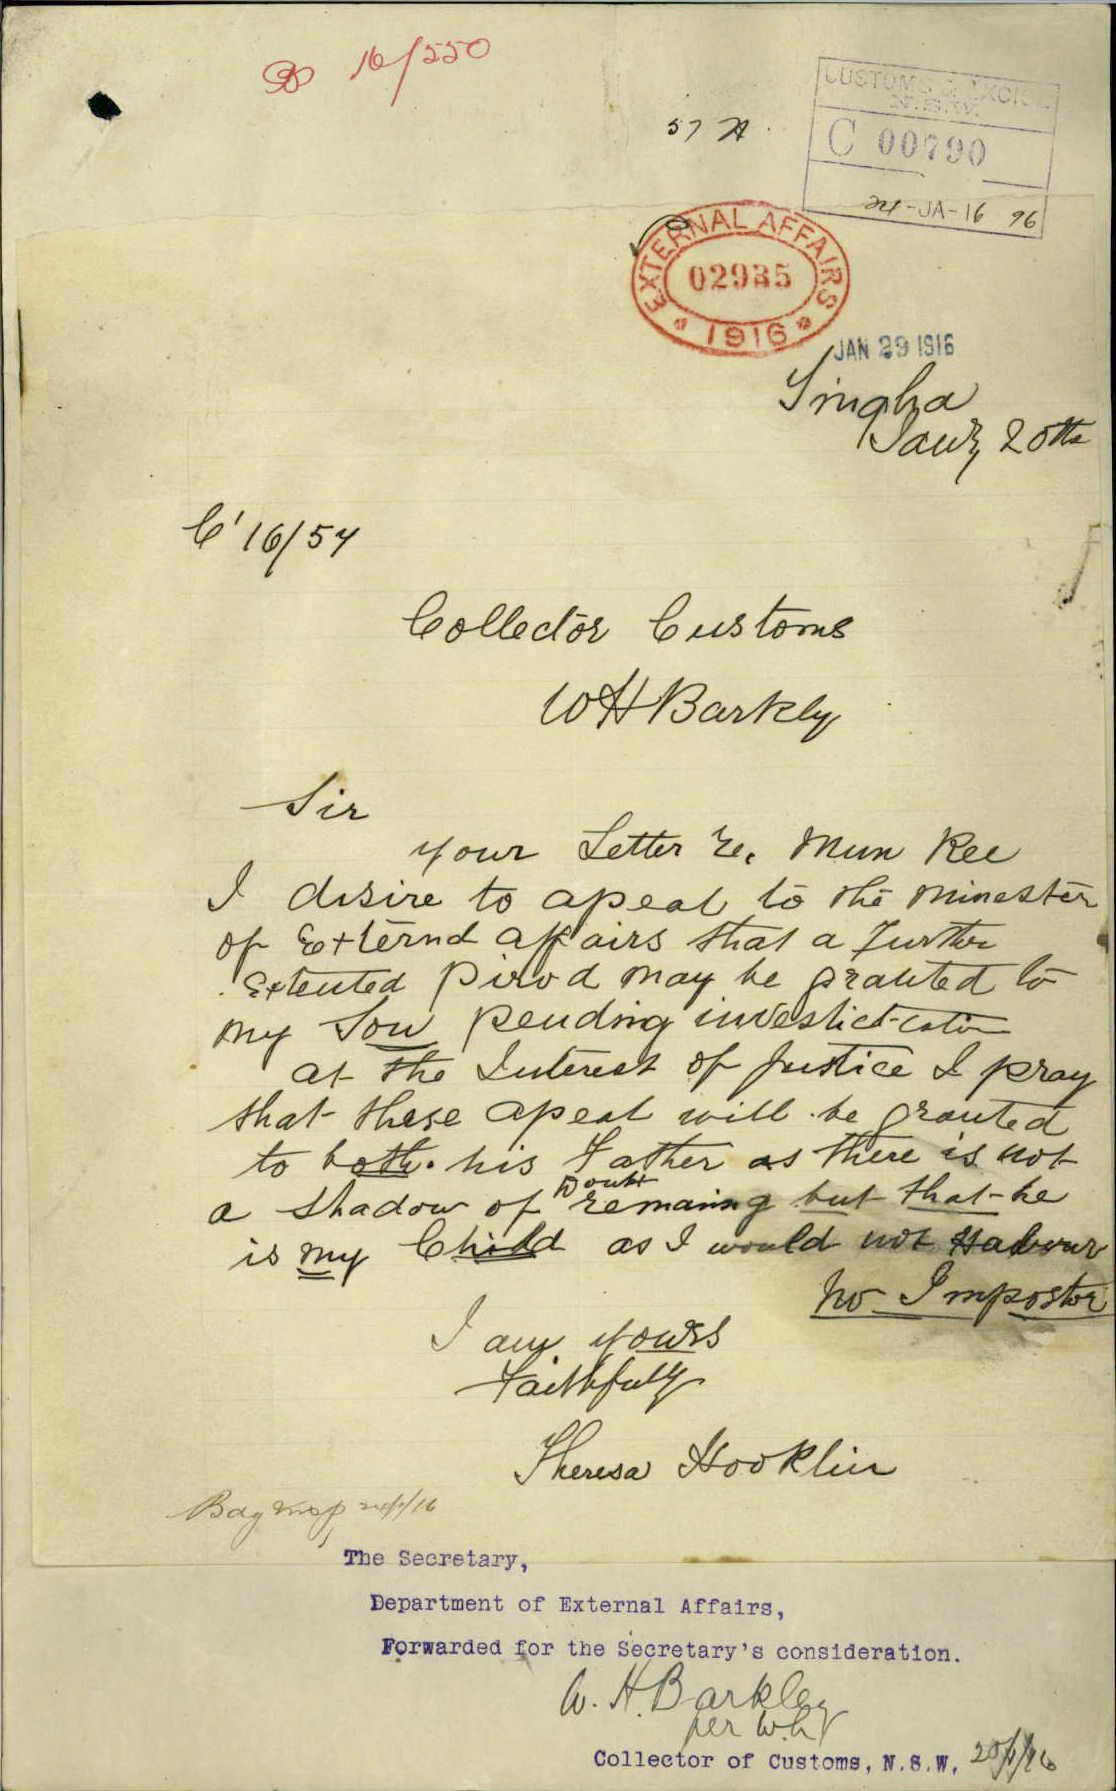 16/550
57 H
CUSTOMS & EXCISE
N.S.W.
C 00790
24-JA-16 96
EXTERNAL AFFAIRS
02935
1916
JAN 29 1916
Tingha
Jany 20th
C' 16/54
Collector Customs
W H Barkly
Sir
your Letter re. Mun Kee
I disire to apeal to the minester
of Externd affairs that a further
Extented pirod may be granted to
my Son pending
at the Interest of Justice I pray
that these apeal will be granted
to both. his Father as there is not
Doubt
a shadow of remaing but that he
is my Child as I would not Habour
No Impostor
I am yours
Faithfully
Theresa Hooklin
24/1/16
The Secretary,
Department of External Affairs,
Forwarded for the Secretary's consideration.
W. H. Barkley
per
Collector of Customs, N.S.W.